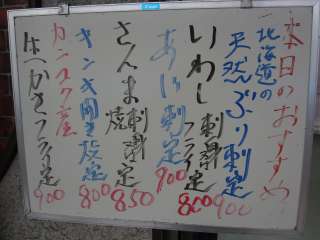 本日のおすすめ
北海道の
天然ぶり刺定 900
いわし刺身定
フライ定 800
あじ刺定 900
さんま刺身定
焼 850
キンキ開き放定 800
カンヌケ産
はへかきフライ定 900